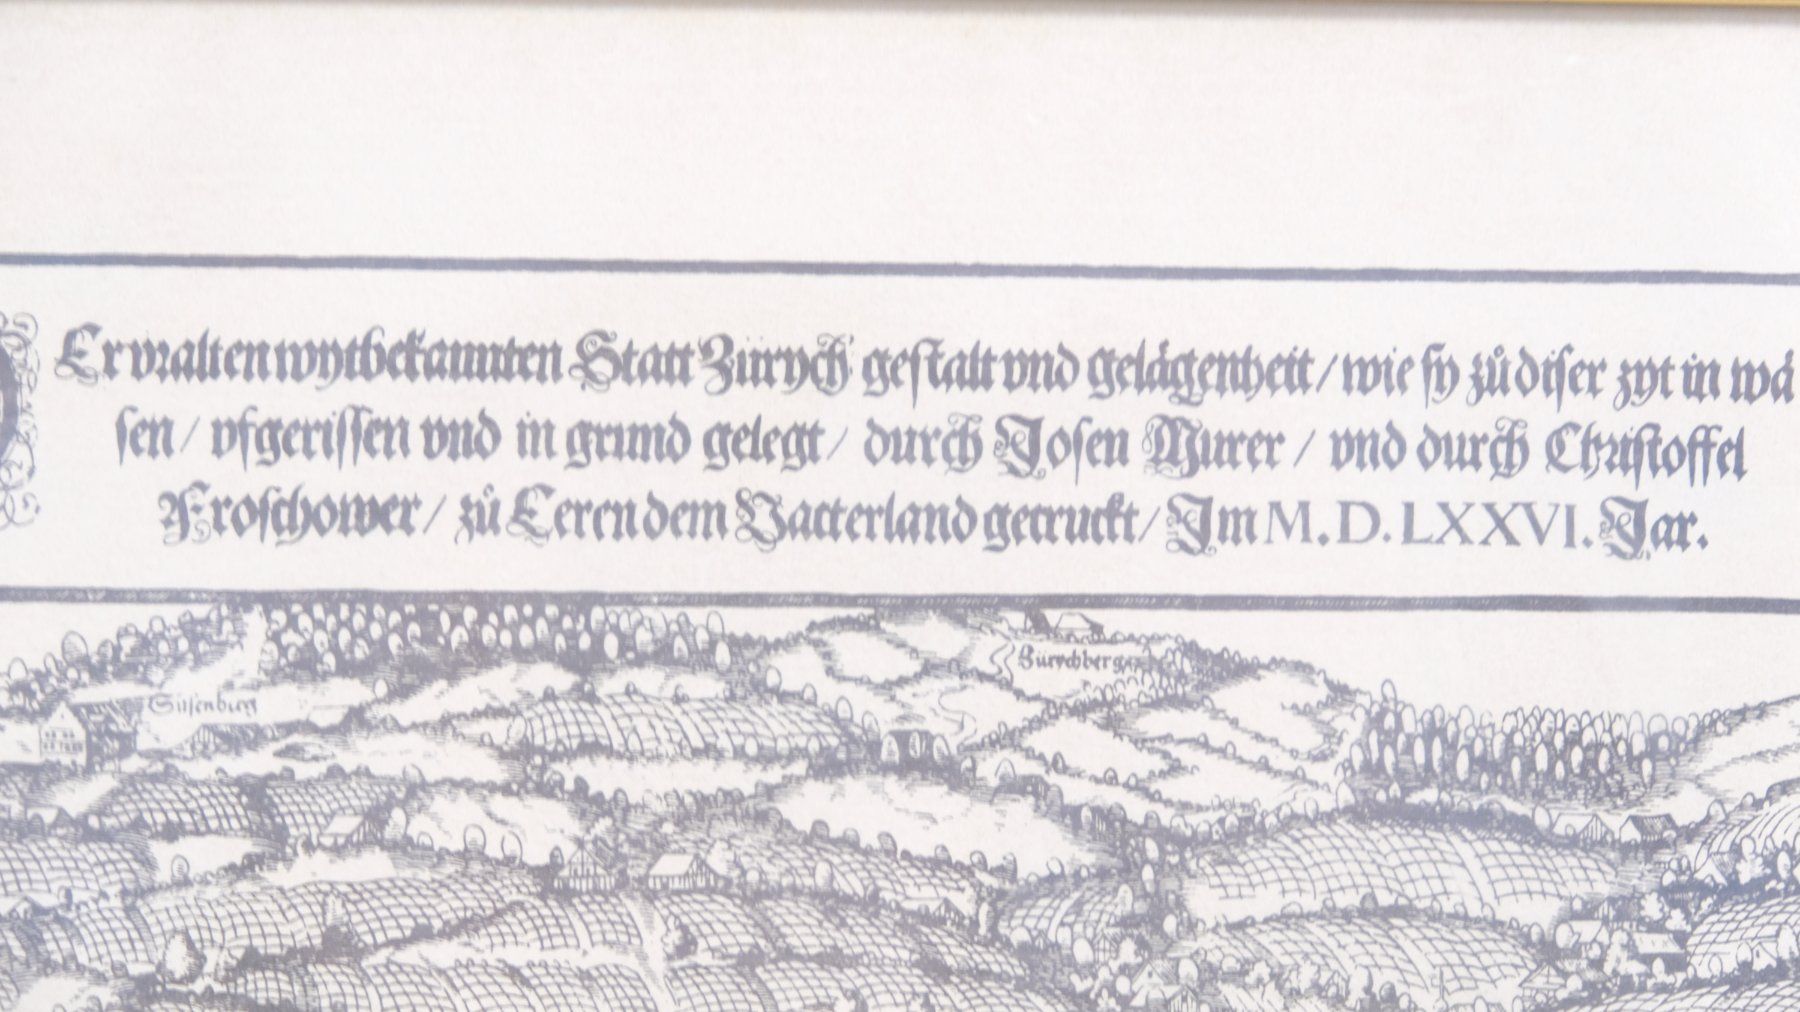 DEr vralten wytbekannten Statt Zürych gestalt vnd gelägenheit / wie sy zů diser zyt in wä
sen / vfgerissen vnd in grund gelegt / durch Josen Murer / vnd durch Christoffel
Froschower / zů Eeren dem Vatterland getruckt / Im M.D.LXXVI. Jar.
Zürychberg
Susenberg